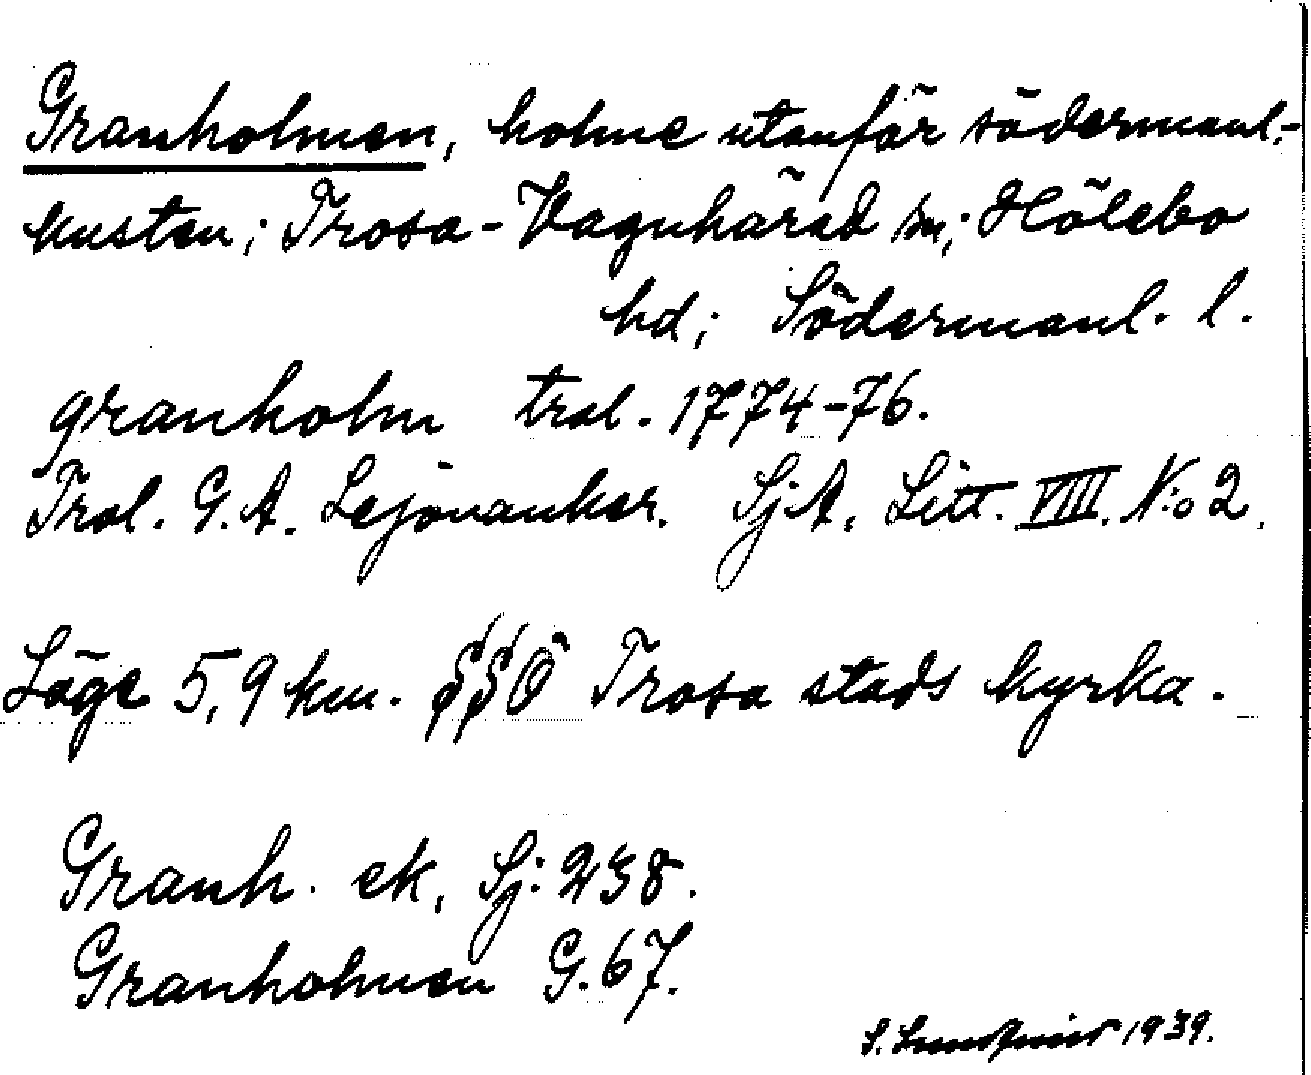 Granholmen, holme utanför södermanl.-
kusten; Trosa-Vagnhärad sn; Hölebo
hd; Södermanl. l.
granholm trol. 1774-76.
Trol. G. A. Lejonanker. Sj A. Litt. VIII. N:o 2.
Läge 5,9 km. SSO Trosa stads kyrka.
Granh. ek. Sj: 238.
Granholmen G. 67.
S. Lundqvist 1939.